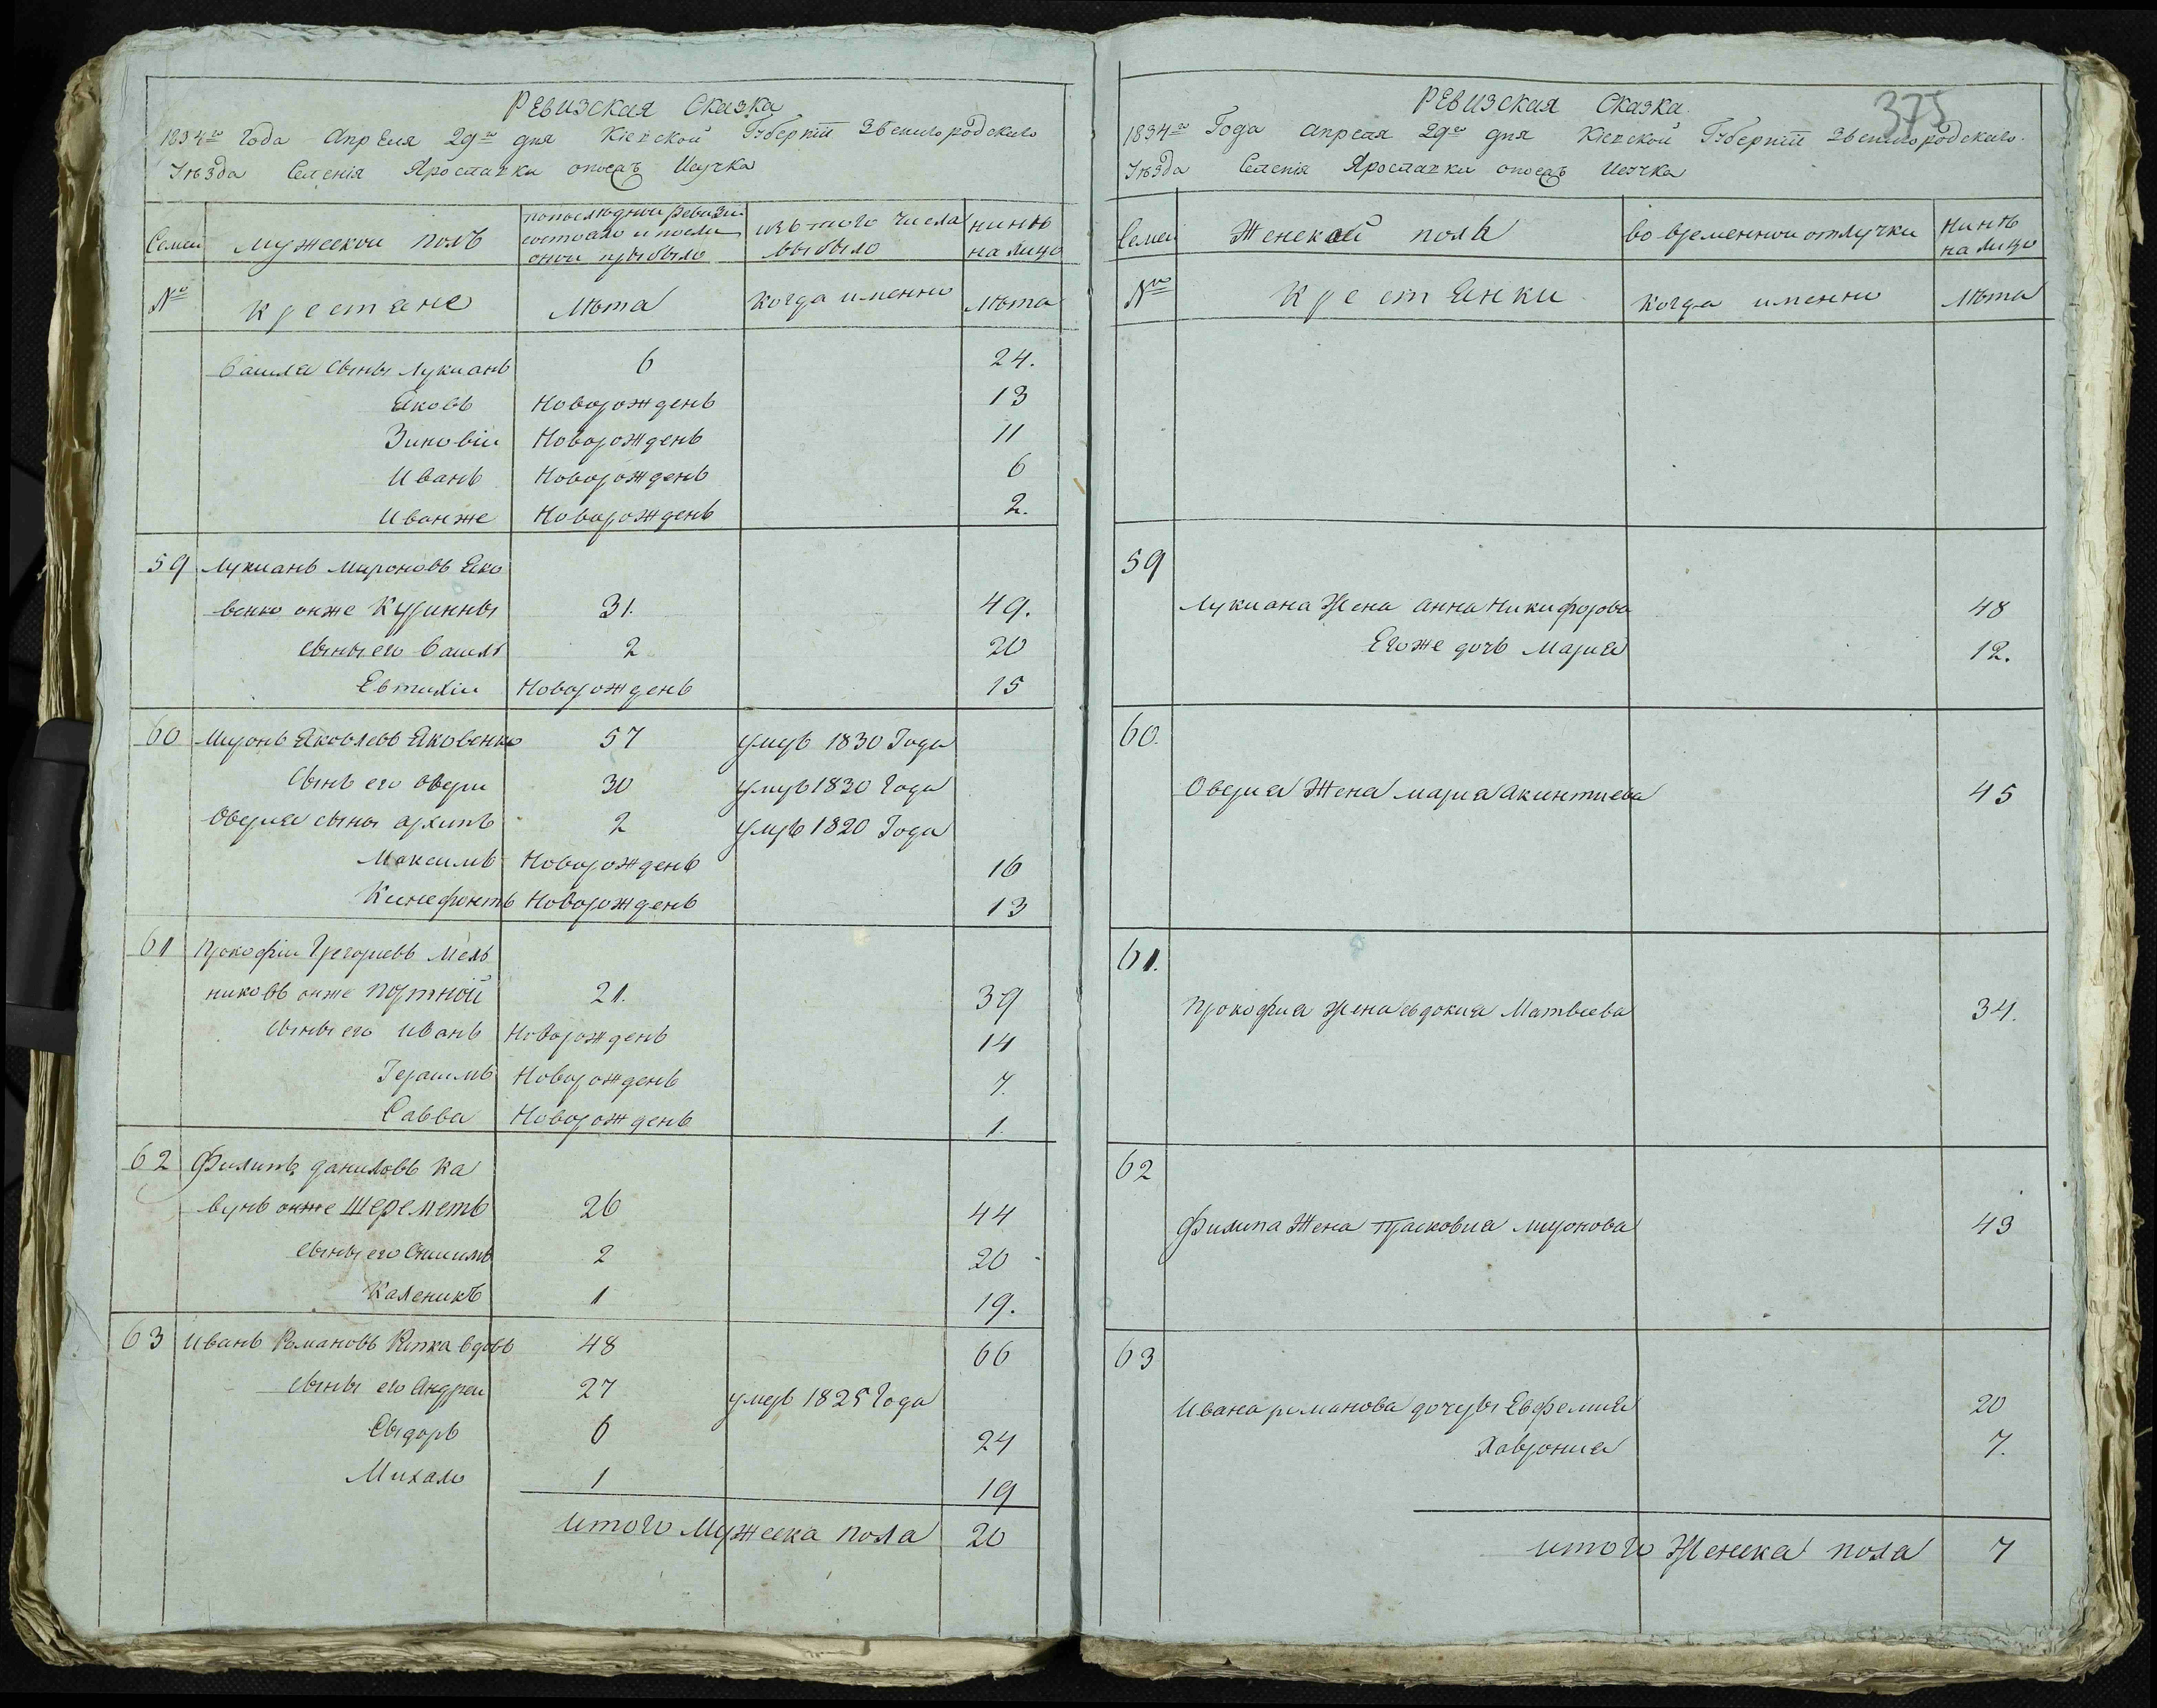 Ревизская Сказка
1834го Года Апреля 29го дня Кіевской Губерніи Звенигородскаго
Уезда Селенія Ярославки
Семеи
мужескои полъ
попоследнеи ревизіи
состояло и после
онои прыбыло
изъ того числа
выбыло
нинѣ
на лицо
№
крестяне
Лѣта
Когда именно
Лѣта
Василя сыны Лукианъ 6 24.
Яковъ Новорожденъ 13
Зиновіи Новорожденъ 11
Иванъ Новорожденъ 6
Иванже Новорожденъ 2.
59 Лукианъ Мироновъ Яко
венко онже Куринны 31. 49.
сыны его Василь 2 20
Евтихіи Новорожденъ 15
60 Миронъ Яковлевъ Яковенко 57 умеръ 1830 Года
Сынъ его Овери 30 умеръ 1830 Года
Оверия сыны архипъ 2 умеръ 1820 Года
Максимъ Новорожденъ 16
Ксенефонтъ Новорожденъ 13
61 Прокофіи Григориевъ Мель
никовъ онже Портной 21. 39
сыны его Иванъ Новорожденъ 14
Герасимъ Новорожденъ 7.
Савва Новорожденъ 1.
62 Филипъ даниловъ Ка
вунъ онже Шереметъ 26 44
сыны его Онисимъ 2 20
Каленикъ 1 19.
63 Иванъ Романовъ Репка вдовъ 48 66
сыны его Андреи 27 умеръ 1825 Года
Сыдоръ 6 24
Михало 1 19
Итого Мужеска пола 20
375
Ревизская Сказка.
1834го Года Апреля 29го дня Кіевской Губерніи Звенигородскаго.
Уезда Селенія Ярославки
Семеи
Женской полъ
во временнои отлучки
Нинѣ
на лицо
№
Крестянки
Когда именно
Лѣта
59
Лукиана Жена Анна Никифорова 48
Егоже дочь Мария 12.
60.
Оверия Жена мария Акинтиева 45
61.
Прокофия Жена евдокия Матвиева 34.
62
Филипа Жена Прасковия миронова 43
63
Ивана романова дочеры Евфемия 20
Хаврония 7.
итого Женска пола 7